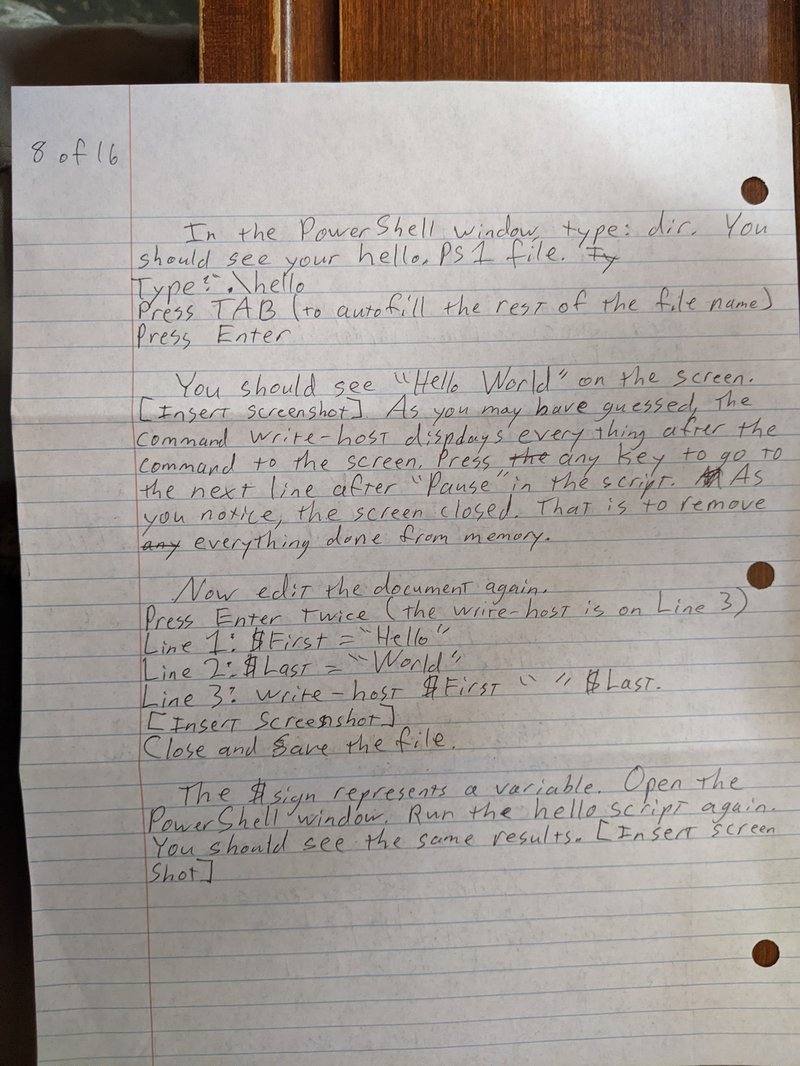 8 of 16
In the PowerShell window, type: dir. You
should see your hello.PS1 file.
Type: .\hello
Press TAB (to autofill the rest of the file name)
Press Enter
You should see "Hello World" on the screen.
[Insert screenshot]. As you may have guessed, the
command write-host dispdays everything after the
command to the screen. Press the any key to go to
the next line after "Pause" in the script. As
you notice, the screen closed. That is to remove
any everything done from memory.
Now edit the document again.
Press Enter twice (the write-host is on Line 3)
Line 1: $First = "Hello"
Line 2: $Last = "World"
Line 3: write-host $First " " $Last.
[Insert Screenshot]
Close and Save the file.
The $ sign represents a variable. Open the
PowerShell window. Run the hello script again.
You should see the same results. [Insert screen
shot]